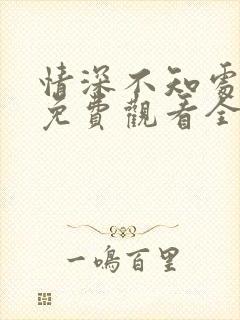 情深不知處
免費觀看全
一鳴百里